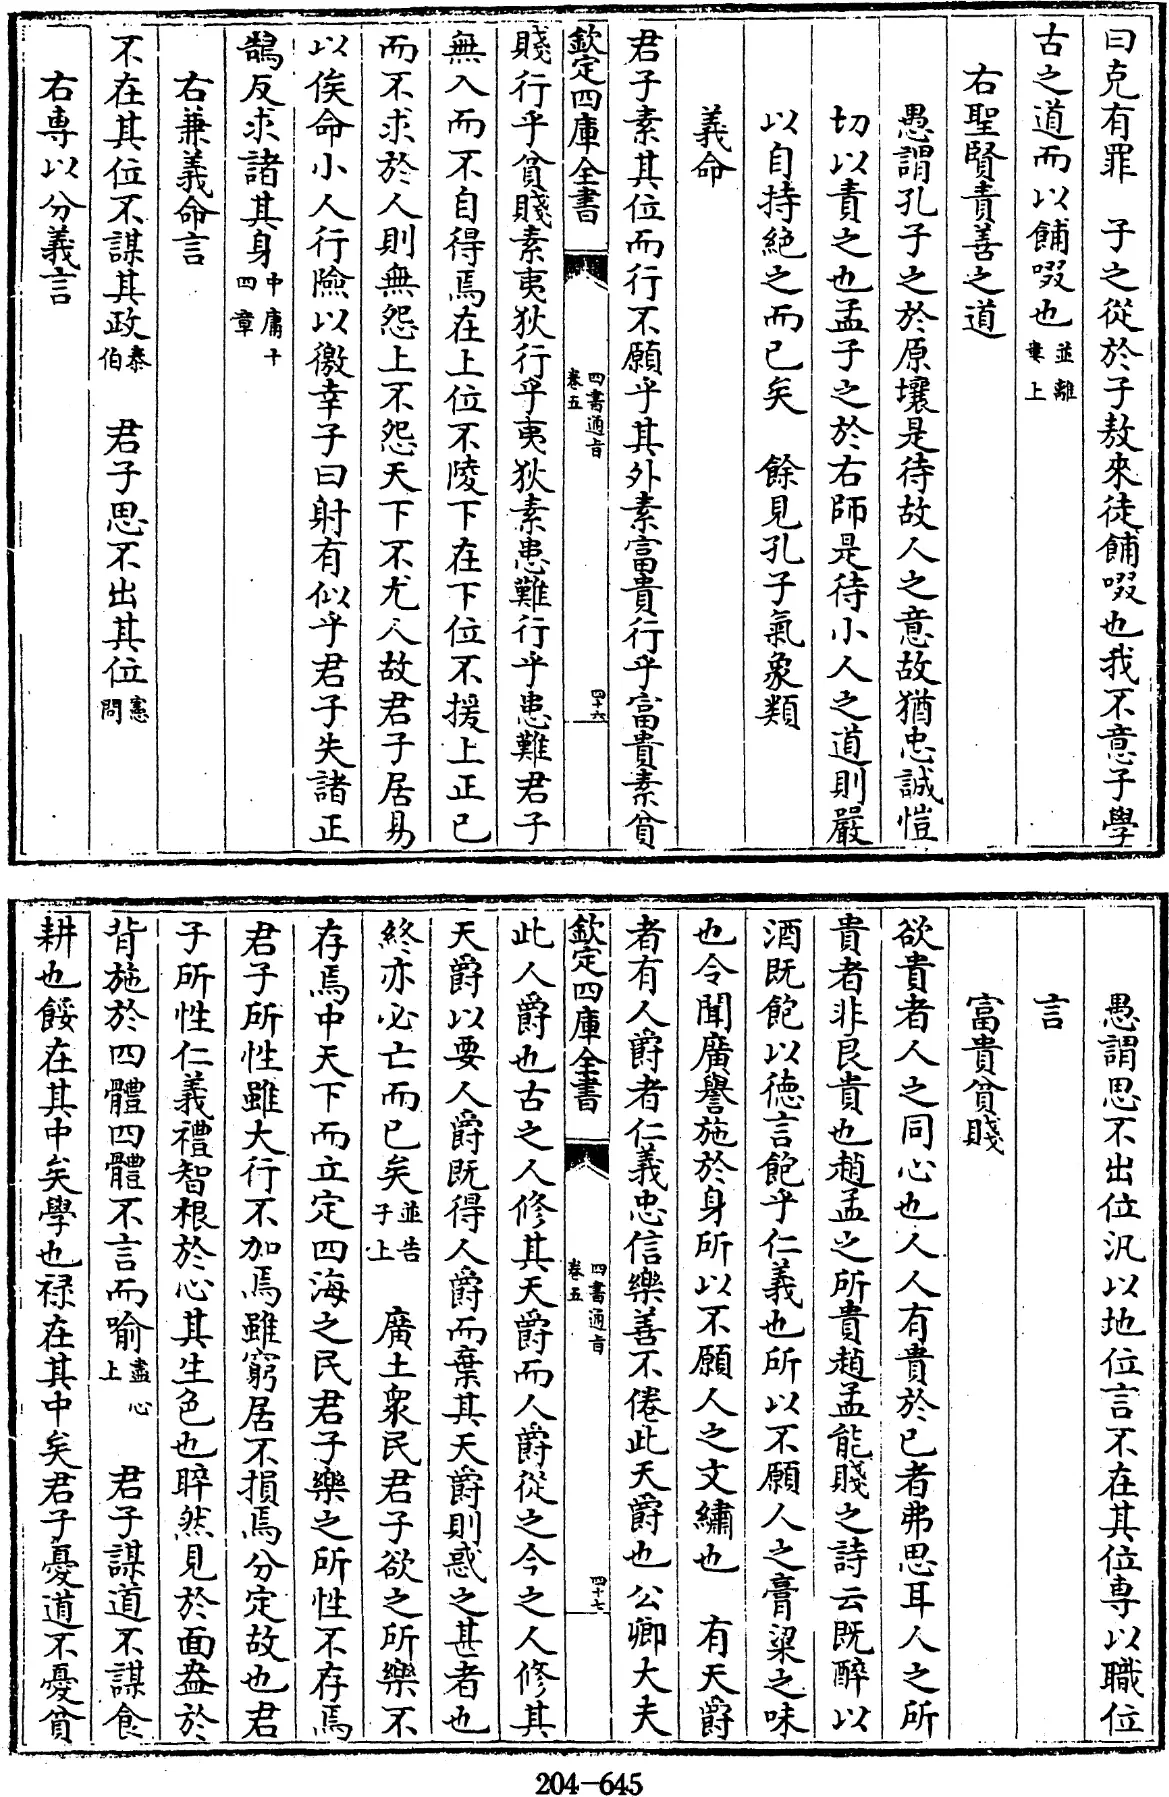 曰克有罪　子之從於子敖來徒餔啜也我不意子學
古之道而以餔啜也並離婁上
右聖賢責善之道
愚謂孔子之於原壤是待故人之意故猶忠誠愷
切以責之也孟子之於右師是待小人之道則嚴
以自持絶之而已矣　餘見孔子氣象類
義命
君子素其位而行不願乎其外素富貴行乎富貴素貧
欽定四庫全書　四書通旨卷五　四十六
賤行乎貧賤素夷狄行乎夷狄素患難行乎患難君子
無入而不自得焉在上位不陵下在下位不援上正已
而不求於人則無怨上不怨天下不尤人故君子居易
以俟命小人行險以徼幸子曰射有似乎君子失諸正
鵠反求諸其身中庸十四章
右兼義命言
不在其位不謀其政泰伯　君子思不出其位憲問
右専以分義言
愚謂思不出位汎以地位言不在其位専以職位
言
富貴貧賤
欲貴者人之同心也人人有貴於已者弗思耳人之所
貴者非良貴也趙孟之所貴趙孟能賤之詩云既醉以
酒既飽以徳言飽乎仁義也所以不願人之膏粱之味
也令聞廣譽施於身所以不願人之文繡也　有天爵
者有人爵者仁義忠信樂善不倦此天爵也公卿大夫
欽定四庫全書　四書通旨卷五　四十七
此人爵也古之人修其天爵而人爵從之今之人修其
天爵以要人爵既得人爵而棄其天爵則惑之甚者也
終亦必亡而已矣並告子上　廣土衆民君子欲之所樂不
存焉中天下而立定四海之民君子樂之所性不存焉
君子所性雖大行不加焉雖窮居不損焉分定故也君
子所性仁義禮智根於心其生色也睟然見於面盎於
背施於四體四體不言而喻盡心上　君子謀道不謀食
耕也餒在其中矣學也禄在其中矣君子憂道不憂貧
204-645